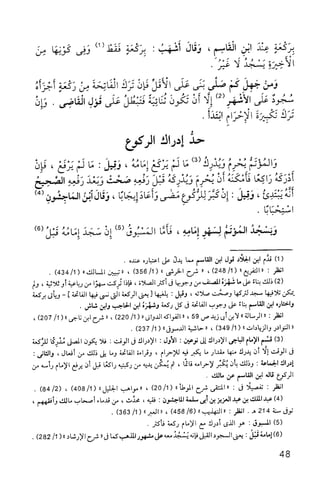 بِرَكْعَةٍ عِنْدَ ابْنِ الْقَاسِمِ ، وَقَالَ أَشْهَبُ : بِرَكْعَةٍ فَقَطْ (1) وَفِي كَوْنِهَا مِنَ
الْأَخِيرَةِ يَسْجُدُ لَا غَيْرُ .
وَمَنْ جَهِلَ كَمْ صَلَّى بَنَى عَلَى الْأَقَلِّ فَإِنْ تَرَكَ الْفَاتِحَةَ مِنْ رَكْعَةٍ أَجْزَأَهُ
سُجُودٌ عَلَى الْأَشْهَرِ (2) إِلَّا أَنْ تَكُونَ ثُنَائِيَّةً فَتَبْطُلُ عَلَى قَوْلِ الْقَاضِي . وَإِنْ
تَرَكَ تَكْبِيرَةَ الْإِحْرَامِ ابْتَدَأَ .
حدُّ إدراك الركوع
وَالْمُؤْتَمُّ يُحْرِمُ وَيُدْرِكُ (3) مَا لَمْ يَرْكَعْ إِمَامُهُ ، وَقِيلَ : مَا لَمْ يَرْفَعْ ، فَإِنْ
أَدْرَكَهُ رَاكِعًا فَأَمْكَنَهُ أَنْ يُحْرِمَ وَيُدْرِكَهُ قَبْلَ رَفْعِهِ صَحَّتْ وَبَعْدَ رَفْعِهِ الصَّحِيحُ
أَنَّهُ يَبْتَدِئُ ، وَقِيلَ : إِنْ كَبَّرَ لِلرُّكُوعِ مَضَى وَأَعَادَ إِيجَابًا ، وَقَالَ ابْنُ الْمَاجِشُونِ (4)
اسْتِحْبَابًا .
وَيَسْجُدُ الْمُؤْتَمُّ لِسَهْوِ إِمَامِهِ ، فَأَمَّا الْمَسْبُوقُ (5) إِنْ سَجَدَ إِمَامُهُ قَبْلُ (6)
(1) قدّم ابن الجلاب قول ابن القاسم مما يدل على اختياره عنده .
انظر : « التفريع » (248/1) ، « شرح الخرشي » (356/1) ، « تبيين المسالك » (434/1) .
(2) ذلك بناء على ما شهّره المصنف من وجوبها في أكثر الصلاة ، فإذا تُركت سهوًا من رباعية أو ثلاثية ، ولم
يمكن تلافيها سجد لتركها وصحت صلاته ، وقيل : يلغيها [ يعني الركعة التي نسي فيها الفاتحة ] - ويأتي بركعة
واختاره ابن القاسم بناءً على وجوب الفاتحة في كل ركعة وشهّره ابن الحاجب وابن شاش .
انظر : « الرسالة » لابن أبي زيد ص 59 ، « الفواكه الدواني » (220/1) ، « شرح ابن ناجي » (207/1) ،
« النوادر والزيادات » (349/1) ، « حاشية الدسوقي » (237/1) .
(3) قسّم الإمام الباجي الإدراك إلى نوعين : الأول : الإدراك في الوقت : فلا يكون المصلي مُدركًا للركعة
في الوقت إلّا أن يدرك منها مقدار ما يكبر فيه للإحرام ، وقراءة الفاتحة وما يلي ذلك من أفعال ، والثاني :
إدراك الجماعة : وذلك بأن يُكَبِّر لإحرامه قائمًا ، ثم يُمكّن يديه من ركبتيه راكعًا قبل أن يرفع الإمام رأسه من
الركوع قاله ابن القاسم عن مالك .
انظر : تفصيلًا في : « المنتقى شرح الموطأ » (20/1) ، « مواهب الجليل » (408/1) ، (84/2) .
(4) عبد الملك بن عبد العزيز بن أبي سلمة الماجشون : فقيه ، محدث ، من قدماء أصحاب مالك وأفقههم ،
توفي سنة 214 هـ . انظر : « التهذيب » (458/6) ، « العبر » (363/1) .
(5) المسبوق : هو الذي أدرك مع الإمام ركعة فأكثر .
(6) إمامهُ قبلُ : يعني السجود القبلي فإنه يَسْجُدُ معه على مشهور المذهب كما في « شرح الإرشاد » (282/1) .
48